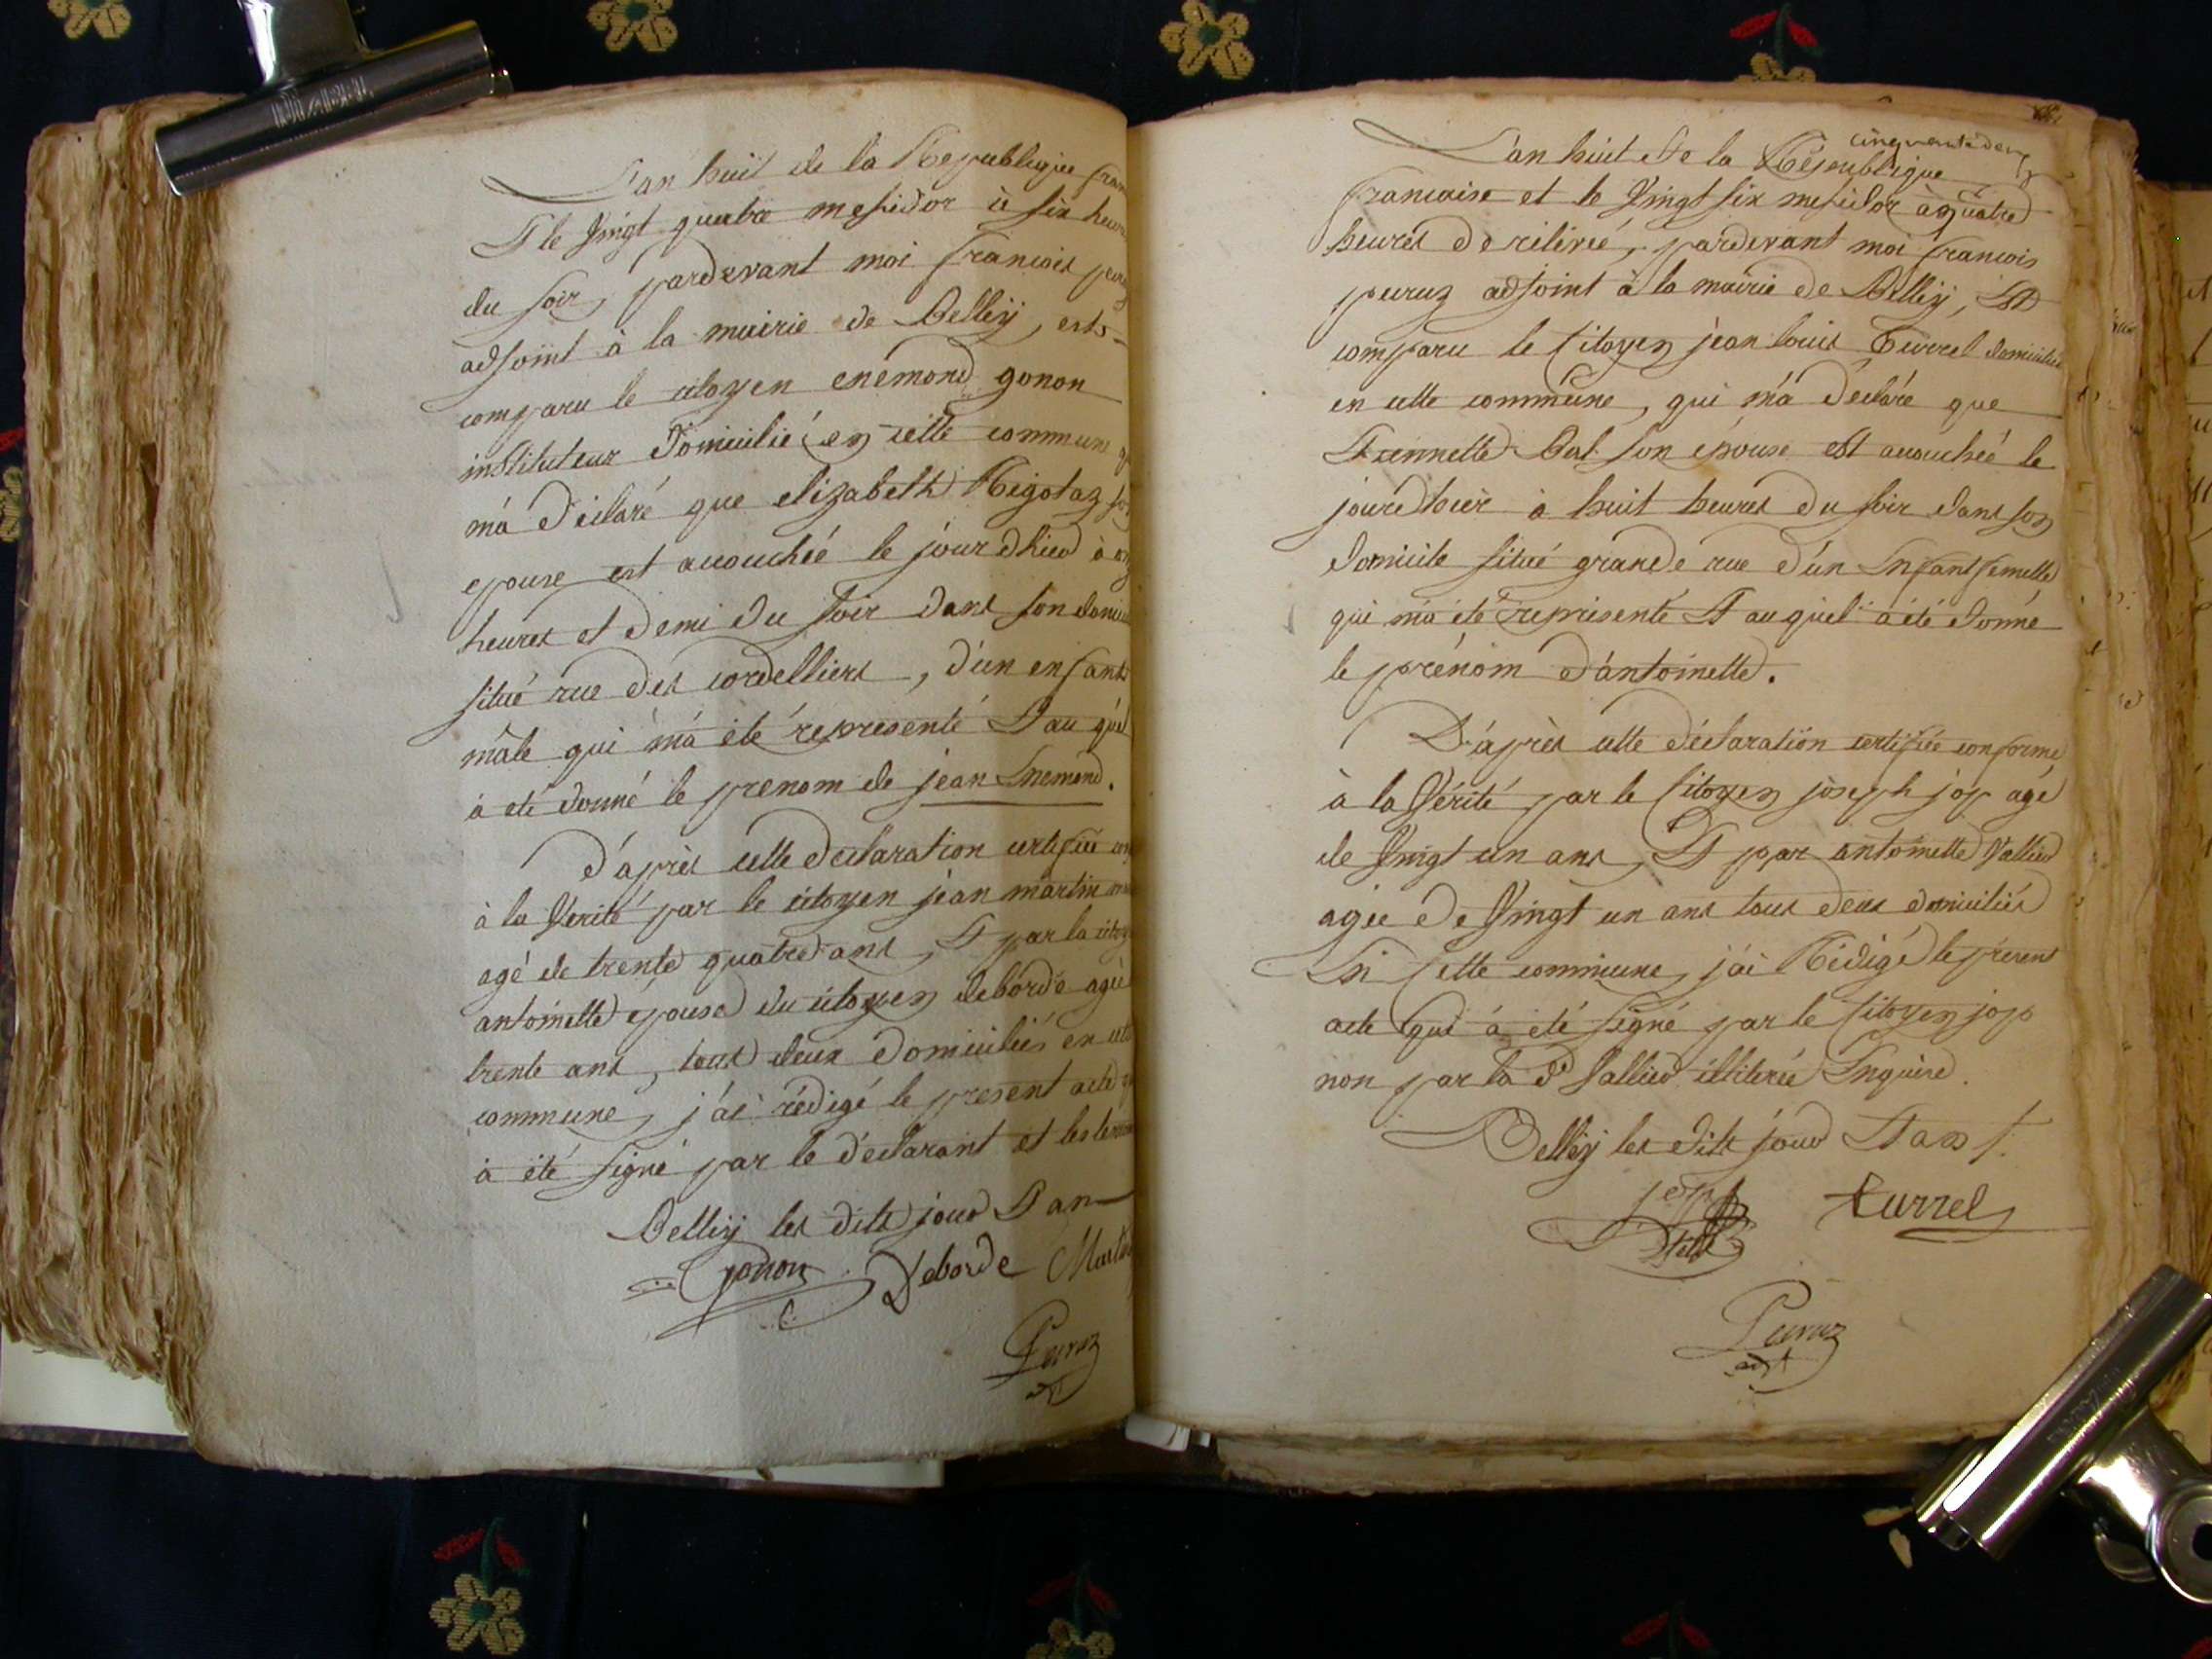 L'an huit de la Republique fran
Et le vingt quatre messidor à six heures
du soir, pardevant moi francois peruz
adjoint à la mairie de Belleÿ, est
comparu le citoyen enémond gonon
instituteur domicilié en cette commune q
m'á déclaré que elizabeth Rigotaz son
epouse est accouchéé le jour dhier à onz
heures et demi du soir dans son domici
situé rue dés cordelliers, d'un enfant
mâle qui m'á été représenté Et au quel
à eté donné le prenom de jean Enemond.
d'après cette declaration certifiée con
à la Verité par le citoyen jean martin
agé de trente quatre ans, Et par la citoy
antoinette epouse du citoyen deborde agée
trente ans, tous deux domiciliés en cette
commune, j'ái rédigé le present acte q
à été signé par le déclarant et les témoins
Belleÿ les dits jour Et an
gonon Deborde Martin
Peruz
adjt
cinquante deux
L'an huit de la République
francaise et le Vingt six messidor à quatre
heures de relévéé, pardevant moi francois
peruz adjoint à la mairie de Belleÿ, Est
comparu le Citoyen jean louis Turrel domicilié
en cette commune, qui m'á déclaré que
Etiennette Bal son épouse est accouchéé le
jourdhier à huit heures du soir dans son
domicile situé grande rue d'ún Enfant femelle
qui m'á été représenté Et au quel à été donné
le prénom d'ántoinette.
D'áprès cette déclaration certifiée conforme
à la Vérité par le Citoyen joseph jop agé
de Vingt un ans, Et par antoinette Vallier
agée de Vingt un ans tous deux domiciliés
En Cette commune, j'ái Rédigé le présent
acte qui á été signé par le Citoyen jop
non par la de Vallier illiterée Enquise.
Belleÿ les dits jour Et an
Turrel
Peruz
adjt